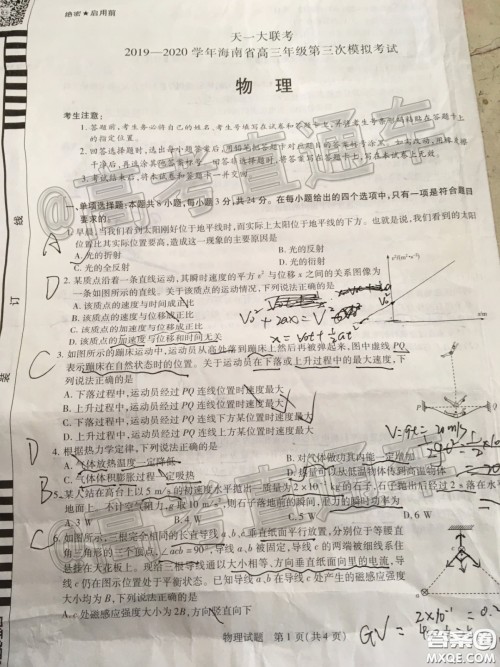 绝密★启用前
天一大联考
2019—2020学年海南省高三年级第三次模拟考试
物 理
考生注意：
1. 答题前，考生务必将自己的姓名、考生号填写在试卷和答题卡上，并将考生号条形码粘贴在答题卡上的指定位置。
2. 回答选择题时，选出每小题答案后，用铅笔把答题卡对应题目的答案标号涂黑。如需改动，用橡皮擦
干净后，再选涂其他答案标号。回答非选择题时，将答案写在答题卡上。写在本试卷上无效。
3. 考试结束后，将本试卷和答题卡一并交回。
@高考直通车
一、单项选择题：本题共8小题，每小题3分，共24分。在每小题给出的四个选项中，只有一项是符合题目
要求的。
1. 早晨，当我们看到太阳刚好位于地平线时，而实际上太阳位于地平线的下方。也就是说，我们看到的太阳
位置比其实际位置要高，造成这一现象的主要原因是
A. 光的折射 B. 光的衍射
C. 光的全反射 D. 光的反射
2. 某质点沿着一条直线运动，其瞬时速度的平方v²与位移x之间的关系图像为
一条如图所示的直线。关于该质点的运动情况，下列说法正确的是
A. 该质点的速度与时间成正比
B. 该质点的速度与位移成正比
C. 该质点的加速度与位移成正比
D. 该质点的加速度与位移和时间无关
3. 如图所示的蹦床运动中，运动员从高处落到蹦床上然后再被弹起来，图中虚线PQ
表示蹦床在自然状态时的位置。关于运动员在下落或上升过程中的最大速度，下
列说法正确的是
A. 下落过程中，运动员经过PQ连线位置时速度最大
B. 上升过程中，运动员经过PQ连线位置时速度最大
C. 下落过程中，运动员经过PQ连线下方某位置时速度最大
D. 上升过程中，运动员经过PQ连线上方某位置时速度最大
4. 根据热力学定律，下列说法正确的是
A. 气体放热温度一定降低 B. 对气体做功其内能一定改变
C. 气体体积膨胀过程一定吸热 D. 热量可以从低温物体传到高温物体
5. 某人站在高台上以5 m/s的初速度水平抛出一质量为
的石子，石子抛出后经过2 s落在水平
地面上。不计空气阻力，g取10 m/s²，则石子落地前的瞬间，重力的瞬时功率为
A. 3 W B. 4 W C. 5 W D. 6 W
6. 如图所示，三根完全相同的长直导线a、b、c垂直纸面平行放置，分别位于等腰直
角三角形的三个顶点，∠acb=90°，导线a、b被固定，导线c的两端被细线系住
悬挂在天花板上。现给三根导线通以大小相等、方向垂直纸面向里的电流，导
线c仍在图示位置处于平衡状态。已知导线a、b在导线c处产生的磁感应强度
大小均为B，下列说法正确的是
A. c处磁感应强度大小为2B，方向竖直向下
物理试题 第1页（共4页）
线
订
装
A
D
C
D
B
C
答案圈
MXQE.COM